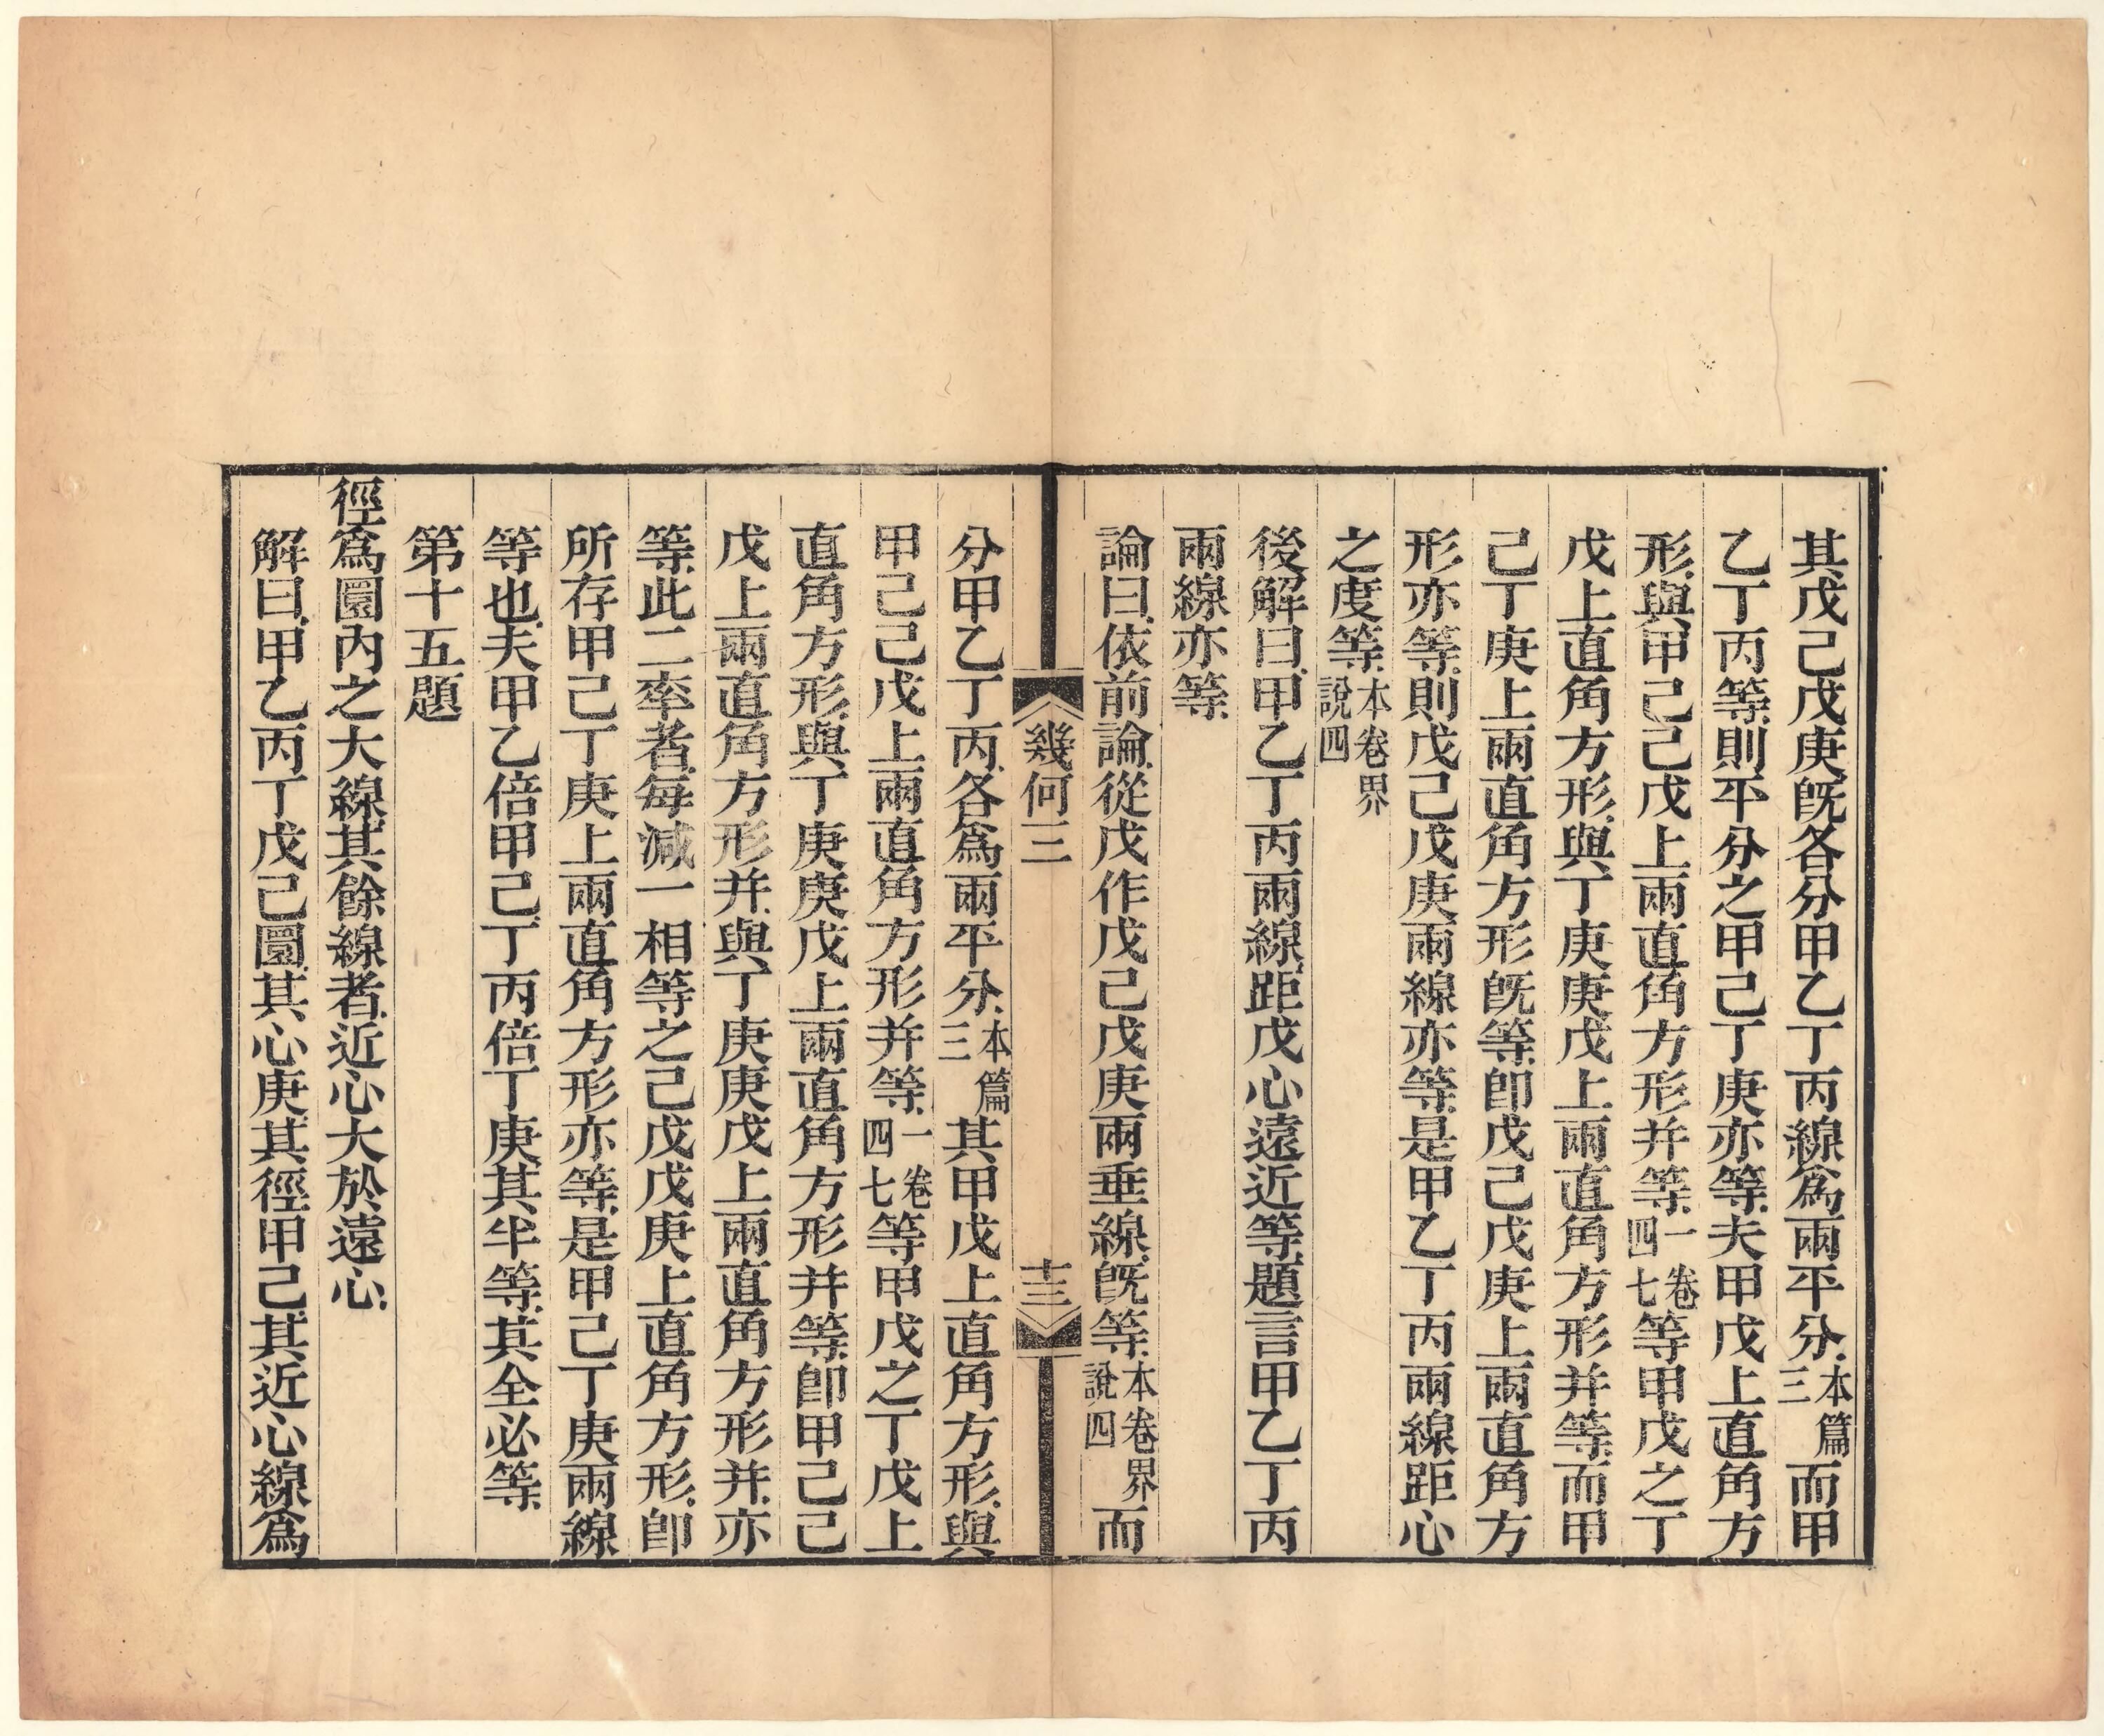 其戊己戊庚旣各分甲乙丁丙線爲兩平分本篇三而甲
乙丁丙等則平分之甲己丁庚亦等夫甲戊上直角方
形與甲己己戊上兩直角方形并等一卷四七等甲戊之丁
戊上直角方形與丁庚庚戊上兩直角方形并等而甲
己丁庚上兩直角方形旣等卽戊己戊庚上兩直角方
形亦等則戊己戊庚兩線亦等是甲乙丁丙兩線距心
之度等本卷界說四
後解曰甲乙丁丙兩線距戊心遠近等題言甲乙丁丙
兩線亦等
論曰依前論從戊作戊己戊庚兩垂線旣等本卷界說四而
幾何三
十三
分甲乙丁丙各爲兩平分本篇三其甲戊上直角方形與
甲己己戊上兩直角方形并等一卷四七等甲戊之丁戊上
直角方形與丁庚庚戊上兩直角方形并等卽甲己己
戊上兩直角方形并與丁庚庚戊上兩直角方形并亦
等此二率者每減一相等之己戊戊庚上直角方形卽
所存甲己丁庚上兩直角方形亦等是甲己丁庚兩線
等也夫甲乙倍甲己丁丙倍丁庚其半等其全必等
第十五題
徑爲圜內之大線其餘線者近心大於遠心
解曰甲乙丙丁戊己圜其心庚其徑甲己其近心線爲